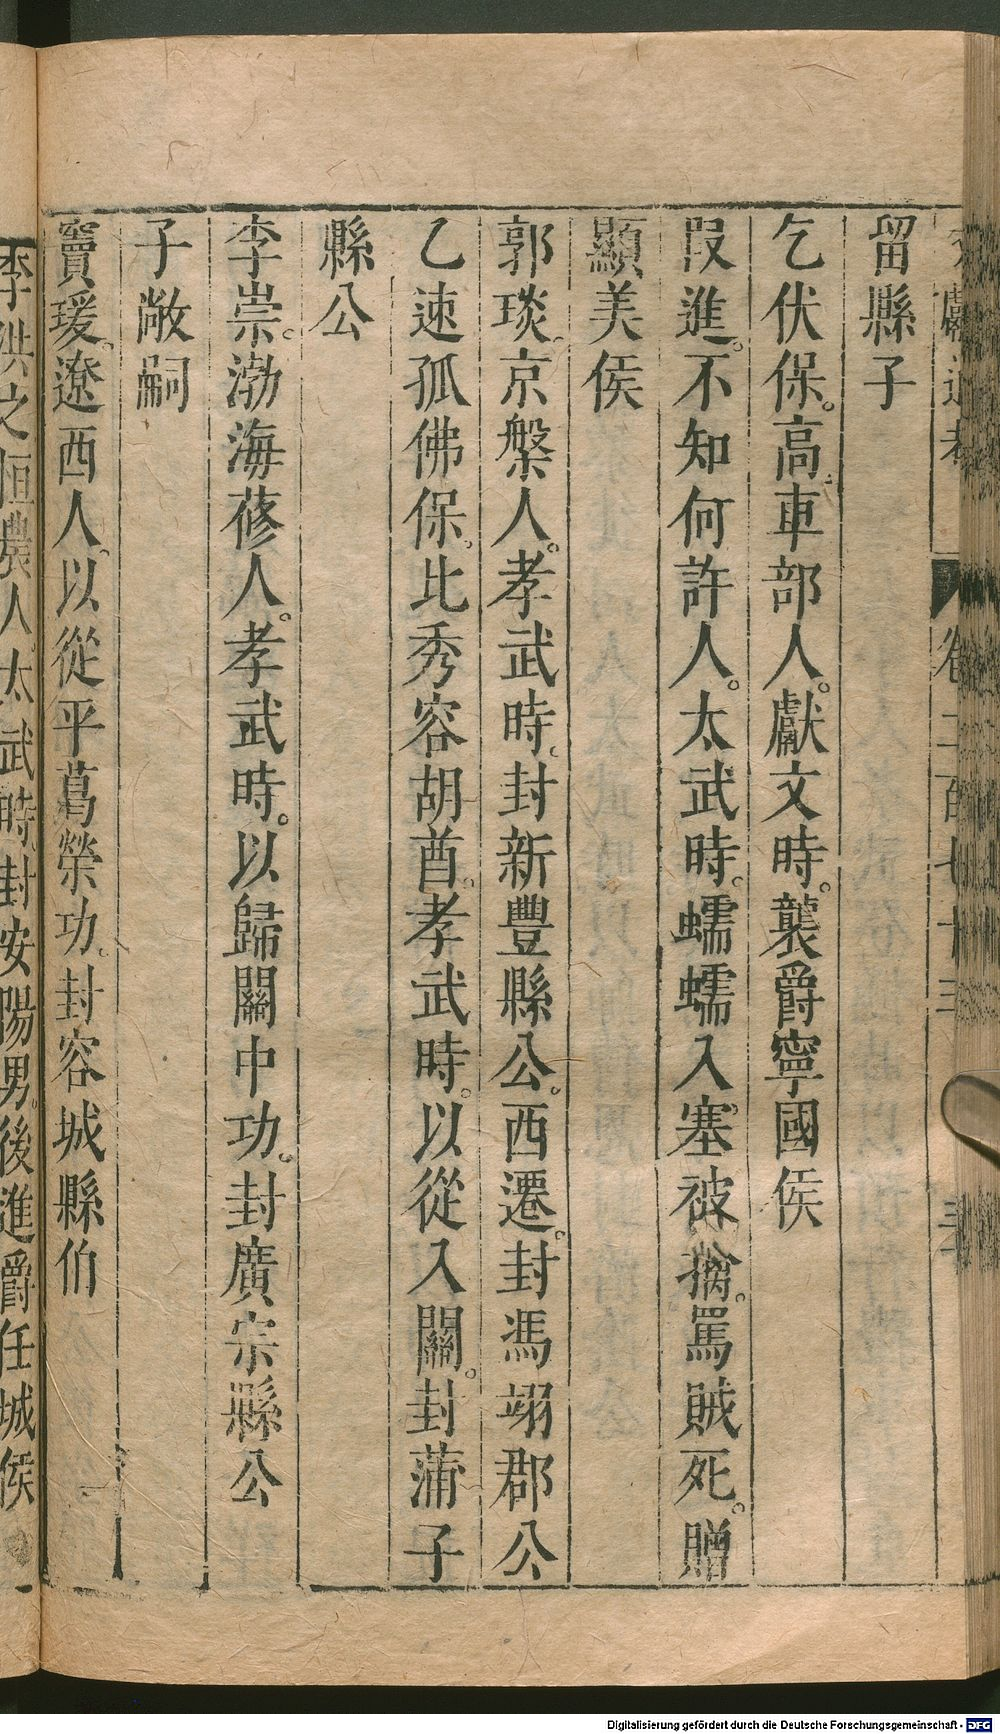 獻通考 卷二百七十三
留縣子
乞伏保。高車部人。獻文時。襲爵寧國侯
段進。不知何許人。太武時。蠕蠕入塞被擒。罵賊死。贈
顯美侯
郭琰。京槃人。孝武時。封新豐縣公。西遷。封馮翊郡公
乙速孤佛保。比秀容胡酋。孝武時。以從入關。封蒲子
縣公
李崇。渤海蓨人。孝武時。以歸關中功。封廣宗縣公
子敞嗣
竇瑗。遼西人。以從平葛榮功。封容城縣伯
李洪之恒農人。太武時。封安陽男。後進爵任城侯
Digitalisierung gefördert durch die Deutsche Forschungsgemeinschaft - DFG